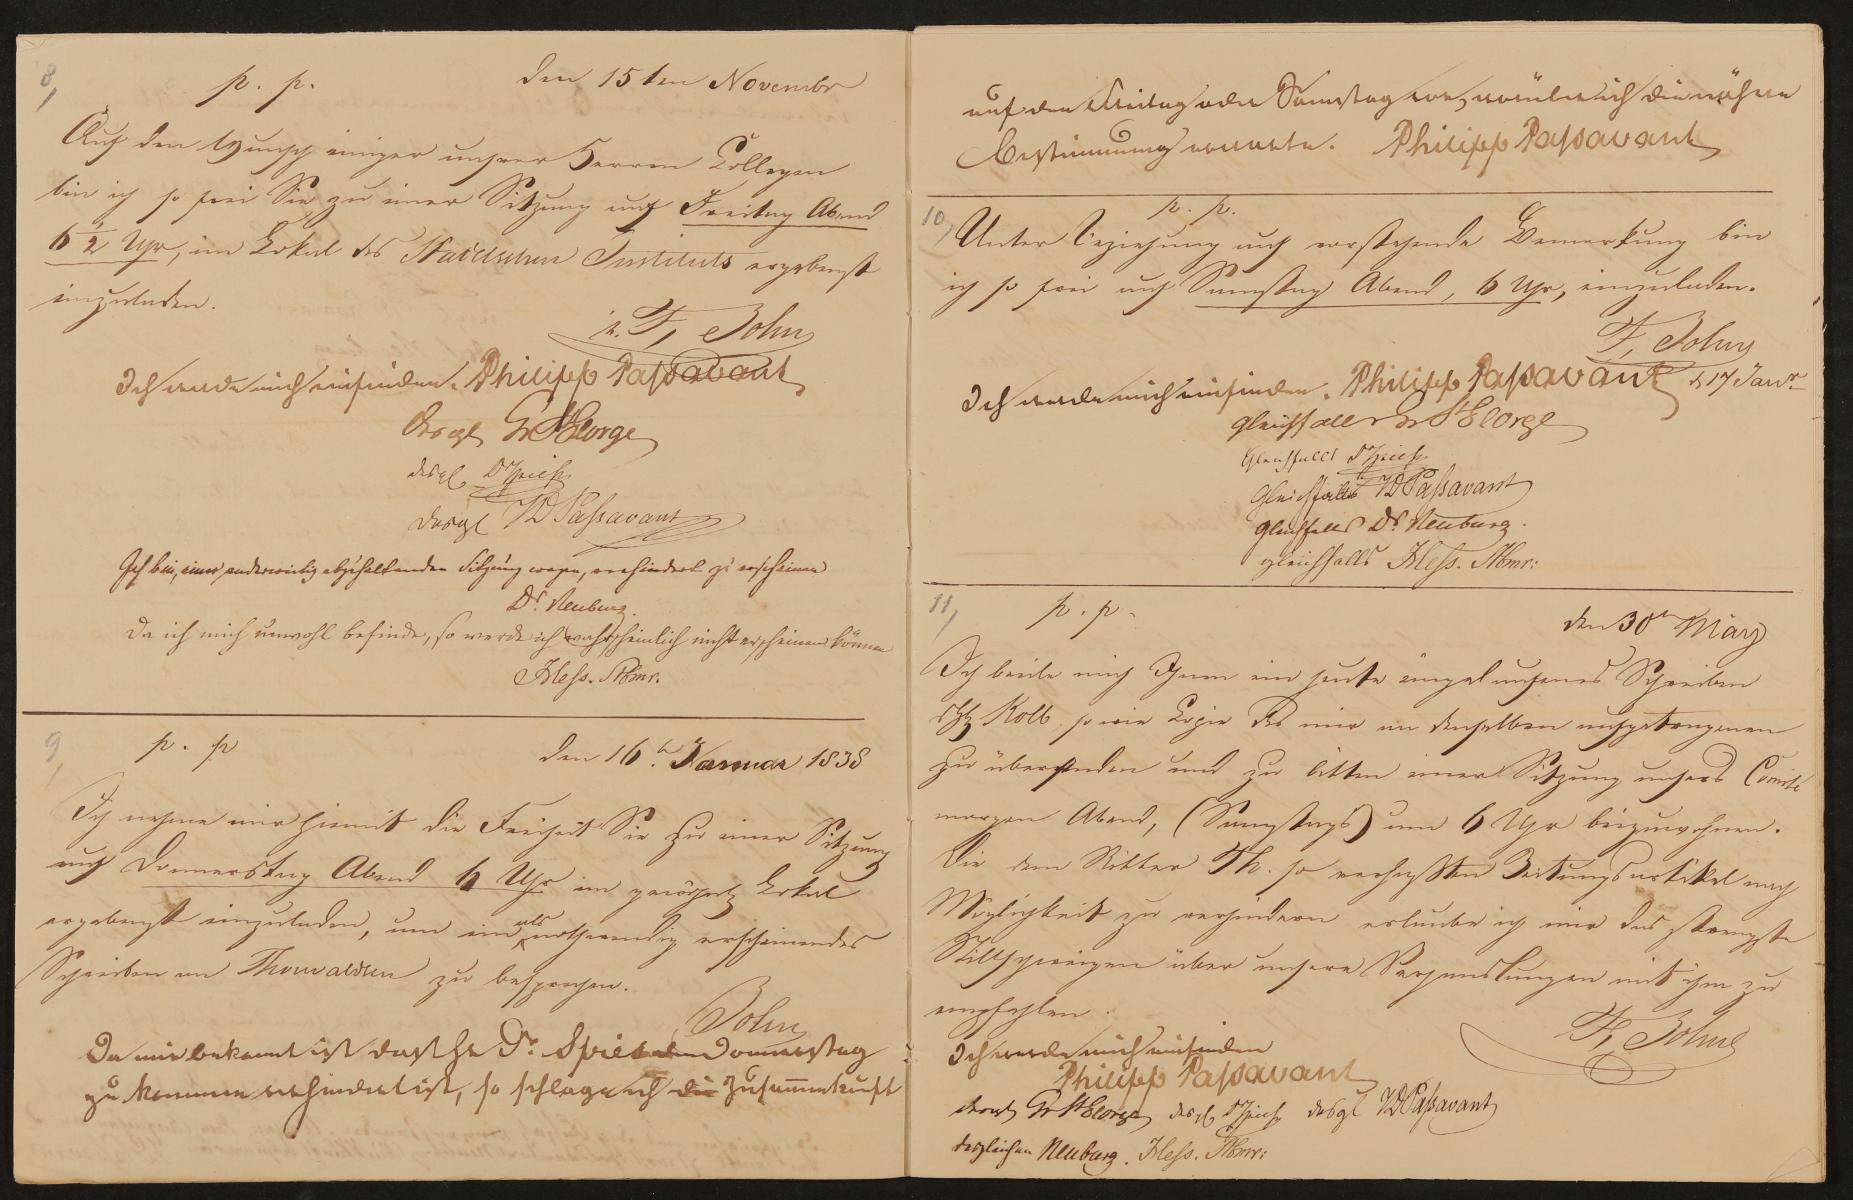 8,
p. p. den 15ten Novembr
Auf den Wunsch einiger unsrer Herren Collegen
bin ich so frei Sie zu einer Sitzung auf Freitag Abend
6 1/2 Uhr, im Lokal des Städelschen Instituts ergebenst
einzuladen.
F. John
Ich werde mich einfinden. Philipp Paſsavant
desgl G StGeorge
desgl Dr Spieſs
desgl JD Paſsavant
Ich bin, einer anderweitig abzuhaltenden Sitzung wegen, verhindert zu erscheinen
Dr. Neuburg.
Da ich mich unwohl befinde, so werde ich wahrscheinlich nicht erscheinen können
Heſs. Stbmr.
9,
p. p den 16t. Januar 1838
Ich nehme mir hiemit die Freiheit Sie zu einer Sitzung
auf Donnerstag Abend 6 Uhr im Lokal
ergebenst einzuladen, um ein als nothwendig erscheinendes
Schreiben an Thorwaldsen zu besprechen.
John
Da mir bekannt ist dass Hr Dr. Spieß den Donnerstag
zu kommen verhindert ist, so schlage ich die Zusammenkunft
auf den Freitag oder Samstag vor, worüber ich die nähere
Bestimmung erwarte. Philipp Paſsavant
10,
p. p.
Unter Beziehung auf vorstehende Bemerkung bin
ich so frei auf Samstag Abend, 6 Uhr, einzuladen.
F. John
Ich werde mich einfinden. Philipp Paſsavant d 17 Janr
gleichfalls G StGeorge
Gleichfalls Dr Spieſs
Gleichfalls JD Paſsavant
gleichfalls Dr. Neuburg.
gleichfalls Heſs. Stbmr:
11,
p. p. den 30n März
Ich beeile mich Ihnen ein heute eingelaufenes Schreiben
Kolb, so wie Copie des mir an denselben aufgetragenen
zu übersenden und zu bitten einer Sitzung unsers Comité
morgen Abend, (Samstags) um 6 Uhr beizuwohnen.
Die dem Ritter Th. so verhaßten Zeitungsartikel nach
Möglichkeit zu verhindern erlaube ich mir das strengste
Stillschweigen über unsere Verhandlungen mit ihm zu
empfehlen.
F. John
Ich werde mich einfinden
Philipp Paſsavant
desgl G StGeorge desgl Dr Spieſs desgl JD Paſsavant
desgleichen Neuburg. Heſs. Stbmr: